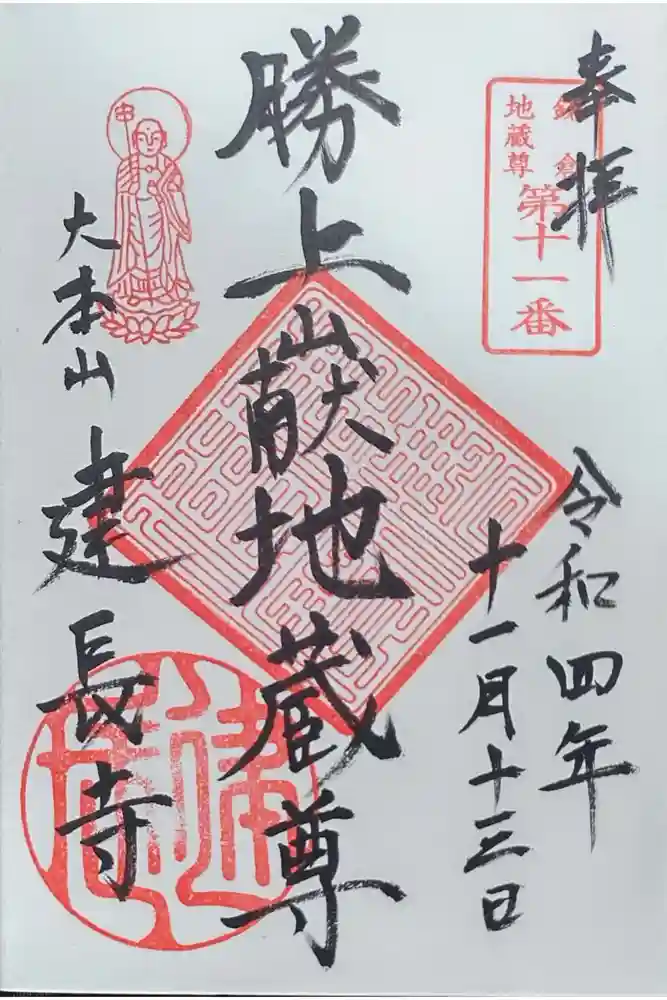 奉拝
鎌倉
地蔵尊
第十一番
令和四年
十一月十三日
勝上嶽地蔵尊
大本山
建長寺